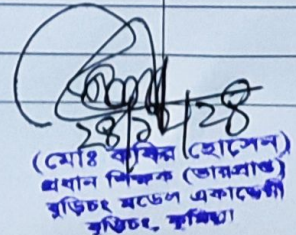 (মোঃ কবির হোসেন)
প্রধান শিক্ষক (ভারপ্রাপ্ত)
বুড়িচং মডেল একাডেমী
বুড়িচং, কুমিল্লা